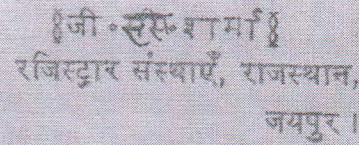 जी॰ एस॰ शर्मा
रजिस्ट्रार संस्थाएँ, राजस्थान,
जयपुर।